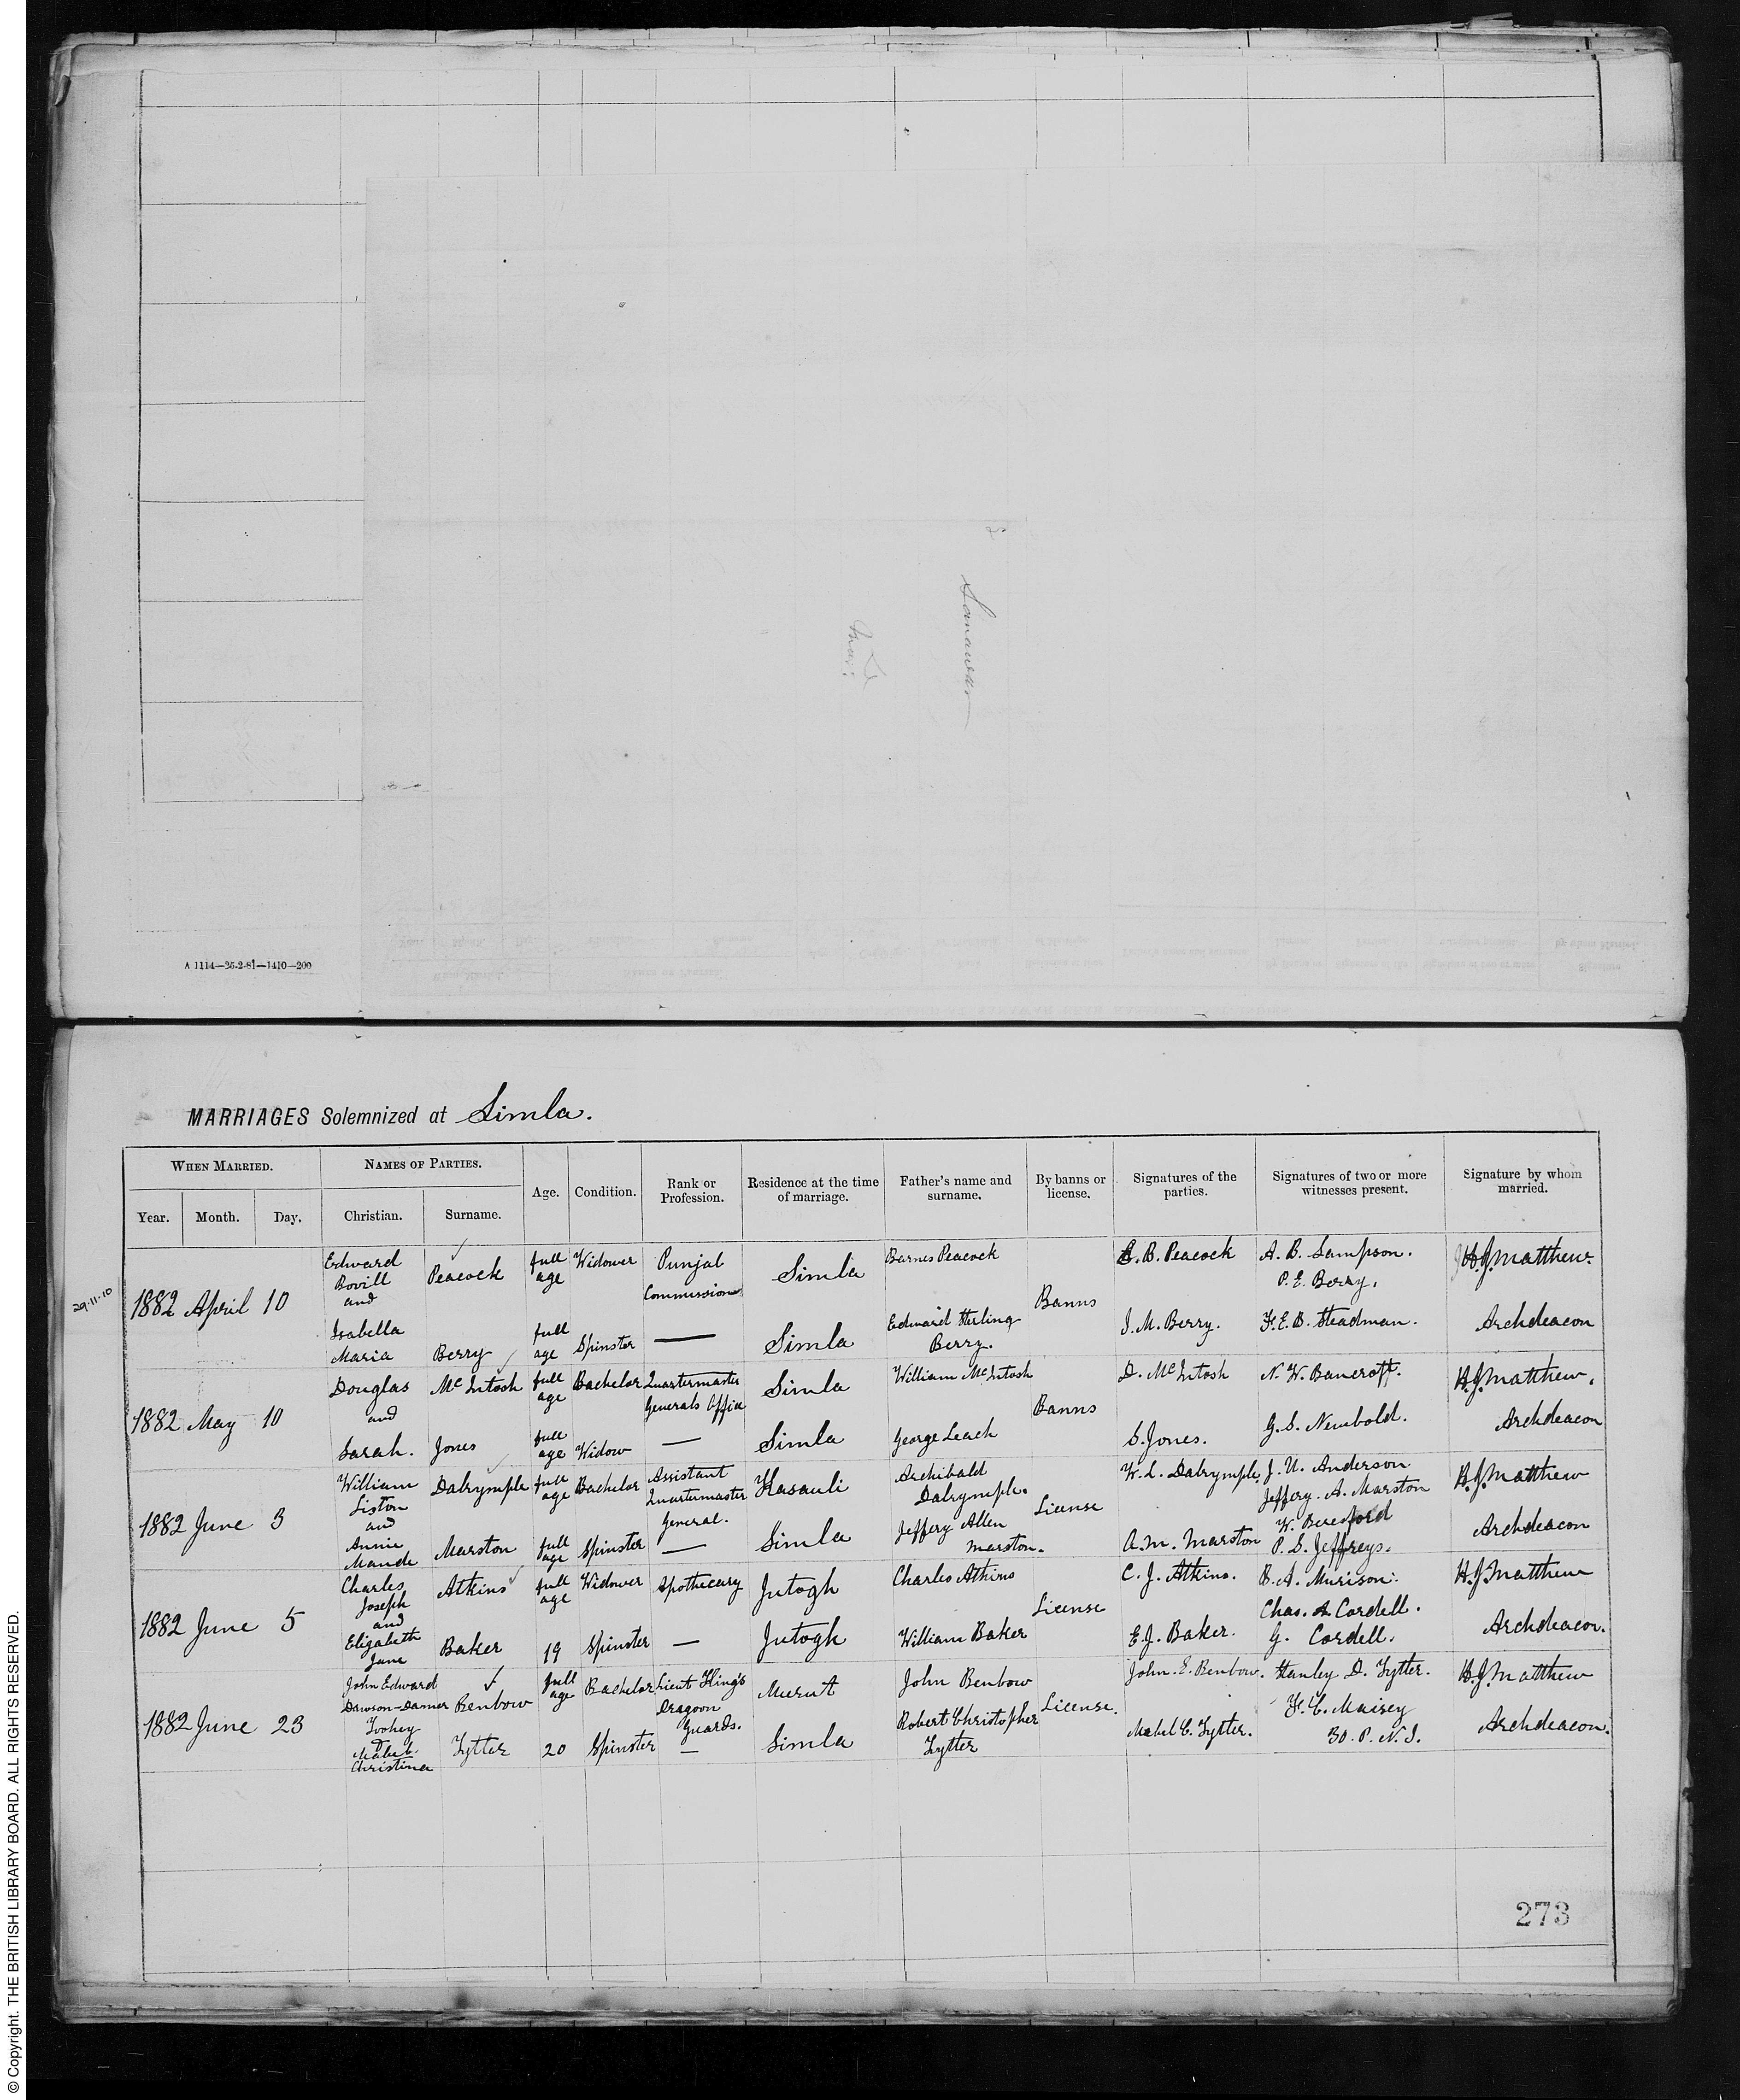 Sanawar
A 1114—25-2-81—1410—200
MARRIAGES Solemnized at Simla.
WHEN MARRIED.
NAMES OF PARTIES.
Age.
Condition.
Rank or Profession.
Residence at the time of marriage.
Father's name and surname.
By banns or license.
Signatures of the parties.
Signatures of two or more witnesses present.
Signature by whom married.
Year.
Month.
Day.
Christian.
Surname.
29.11.10
1882 April 10
Edward Bovill and
Peacock
full age
Widower
Punjab Commission
Simla
Barnes Peacock
Banns
E. B. Peacock
A. B. Sampson.
P. E. Berry.
H.J. Matthew.
Isabella Maria
Berry
full age
Spinster
—
Simla
Edward Sterling Berry.
I. M. Berry.
F. E. B. Steadman.
Archdeacon
1882 May 10
Douglas and
McIntosh
full age
Bachelor
Quartermaster Generals Office
Simla
William McIntosh
Banns
D. McIntosh
N. W. Bancroft.
H.J. Matthew.
Sarah.
Jones
full age
Widow
—
Simla
George Leach
S. Jones.
G. S. Newbold.
Archdeacon
1882 June 3
William Liston and
Dalrymple
full age
Bachelor
Assistant Quartermaster General.
Kasauli
Archibald Dalrymple.
License
W. L. Dalrymple.
J. U. Anderson
Jeffery. A. Marston
H.J. Matthew
Annie Maude
Marston
full age
Spinster
—
Simla
Jeffery Allen Marston.
A. M. Marston
W. Beresford
P. S. Jeffreys.
Archdeacon
1882 June 5
Charles Joseph and
Atkins
full age
Widower
Apothecary
Jutogh
Charles Atkins
License
C. J. Atkins.
B. A. Murison.
Chas. A Cordell.
H.J. Matthew
Elizabeth Jane
Baker
19
Spinster
—
Jutogh
William Baker
E. J. Baker.
G. Cordell.
Archdeacon.
1882 June 23
John Edward Dawson-Damer Toohey &
Benbow
full age
Bachelor
Lieut King's Dragoon Guards.
Meerut
John Benbow
License.
John. E. Benbow.
Stanley D. Tytter.
H.J. Matthew
Mabel Christina
Tytter
20
Spinster
—
Simla
Robert Christopher Tytter
Mabel C. Tytter.
F. C. Maisey
30. P. N. I.
Archdeacon.
273
© Copyright. THE BRITISH LIBRARY BOARD. ALL RIGHTS RESERVED.